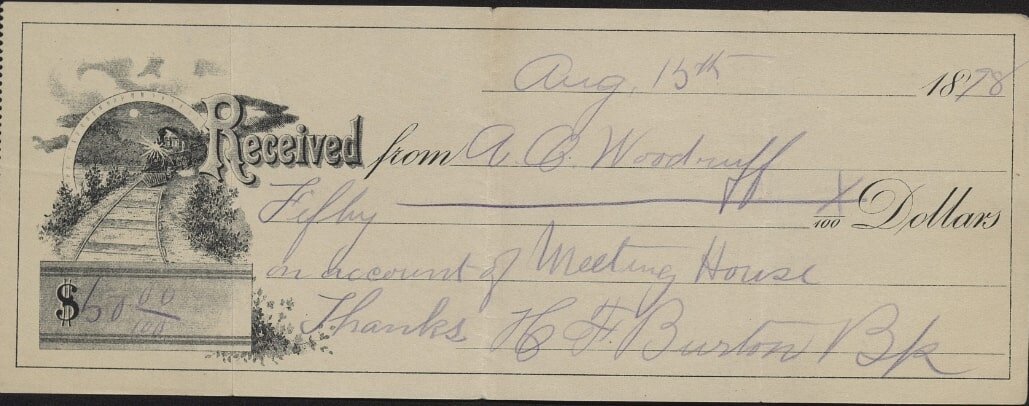 Aug, 15th 1878
Received from A. C. Woodruff
Fifty X/100 Dollars
on account of Meeting House
$50 00/100
Thanks H F Burton Bp